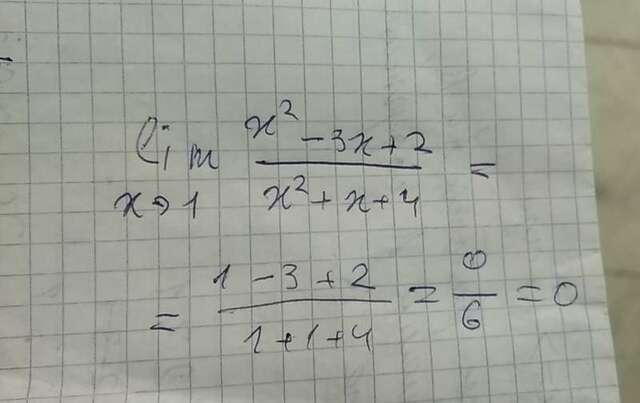 lim x²-3x+2 / x²+x+4 =
x→1
= 1-3+2 / 1+1+4 = 0/6 = 0